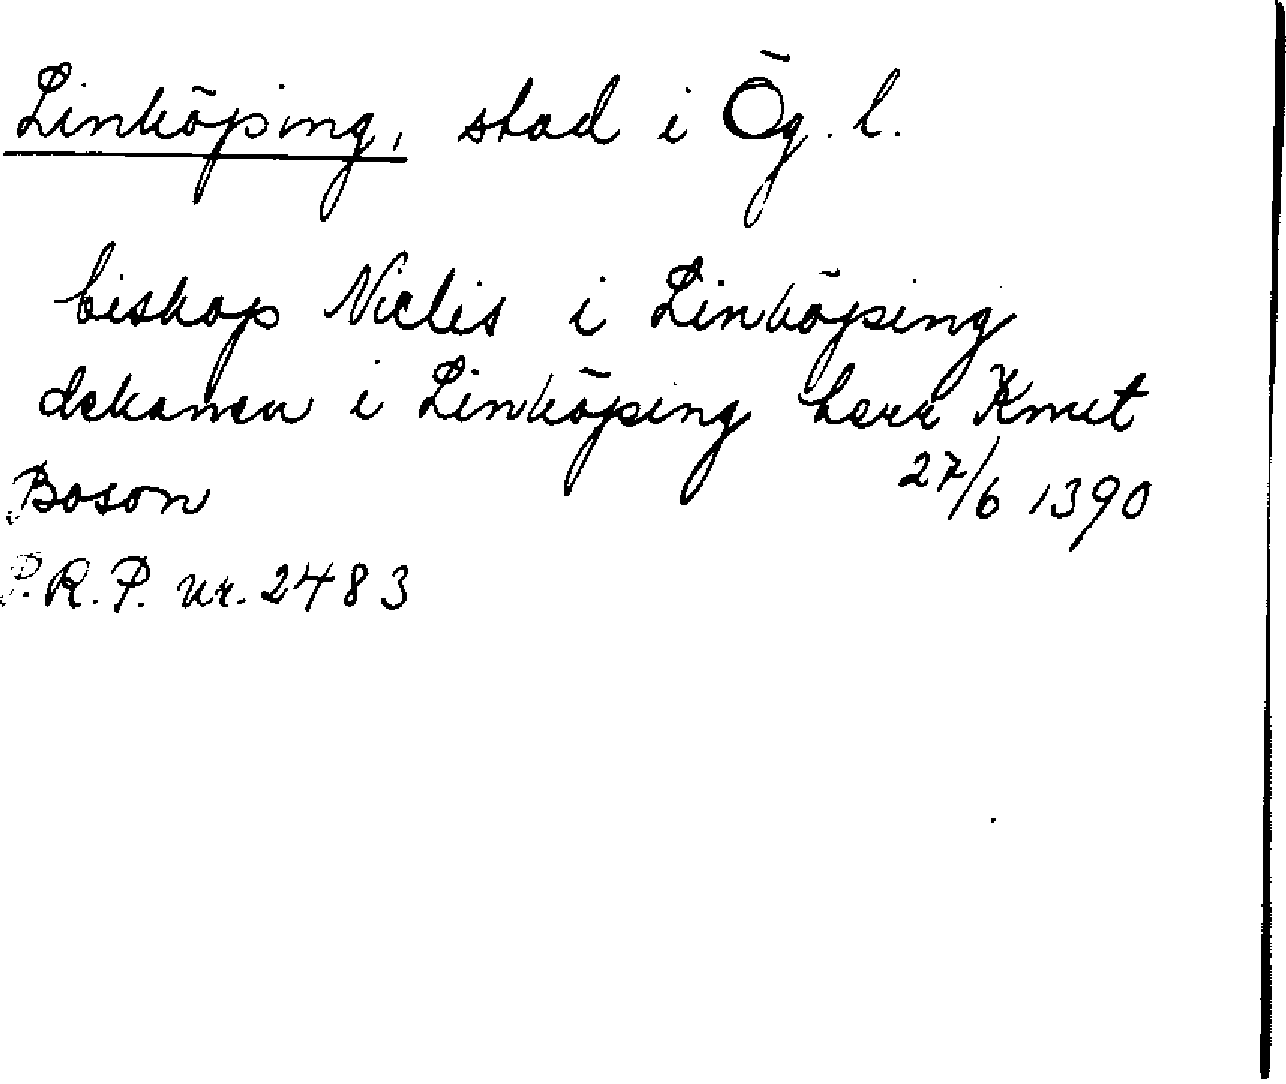 Linköping, stad i Ög. l.
biskop Niclis i Linköping
dekanen i Linköping herr Knut
Boson 27/6 1390
P.R.P. nr. 2483